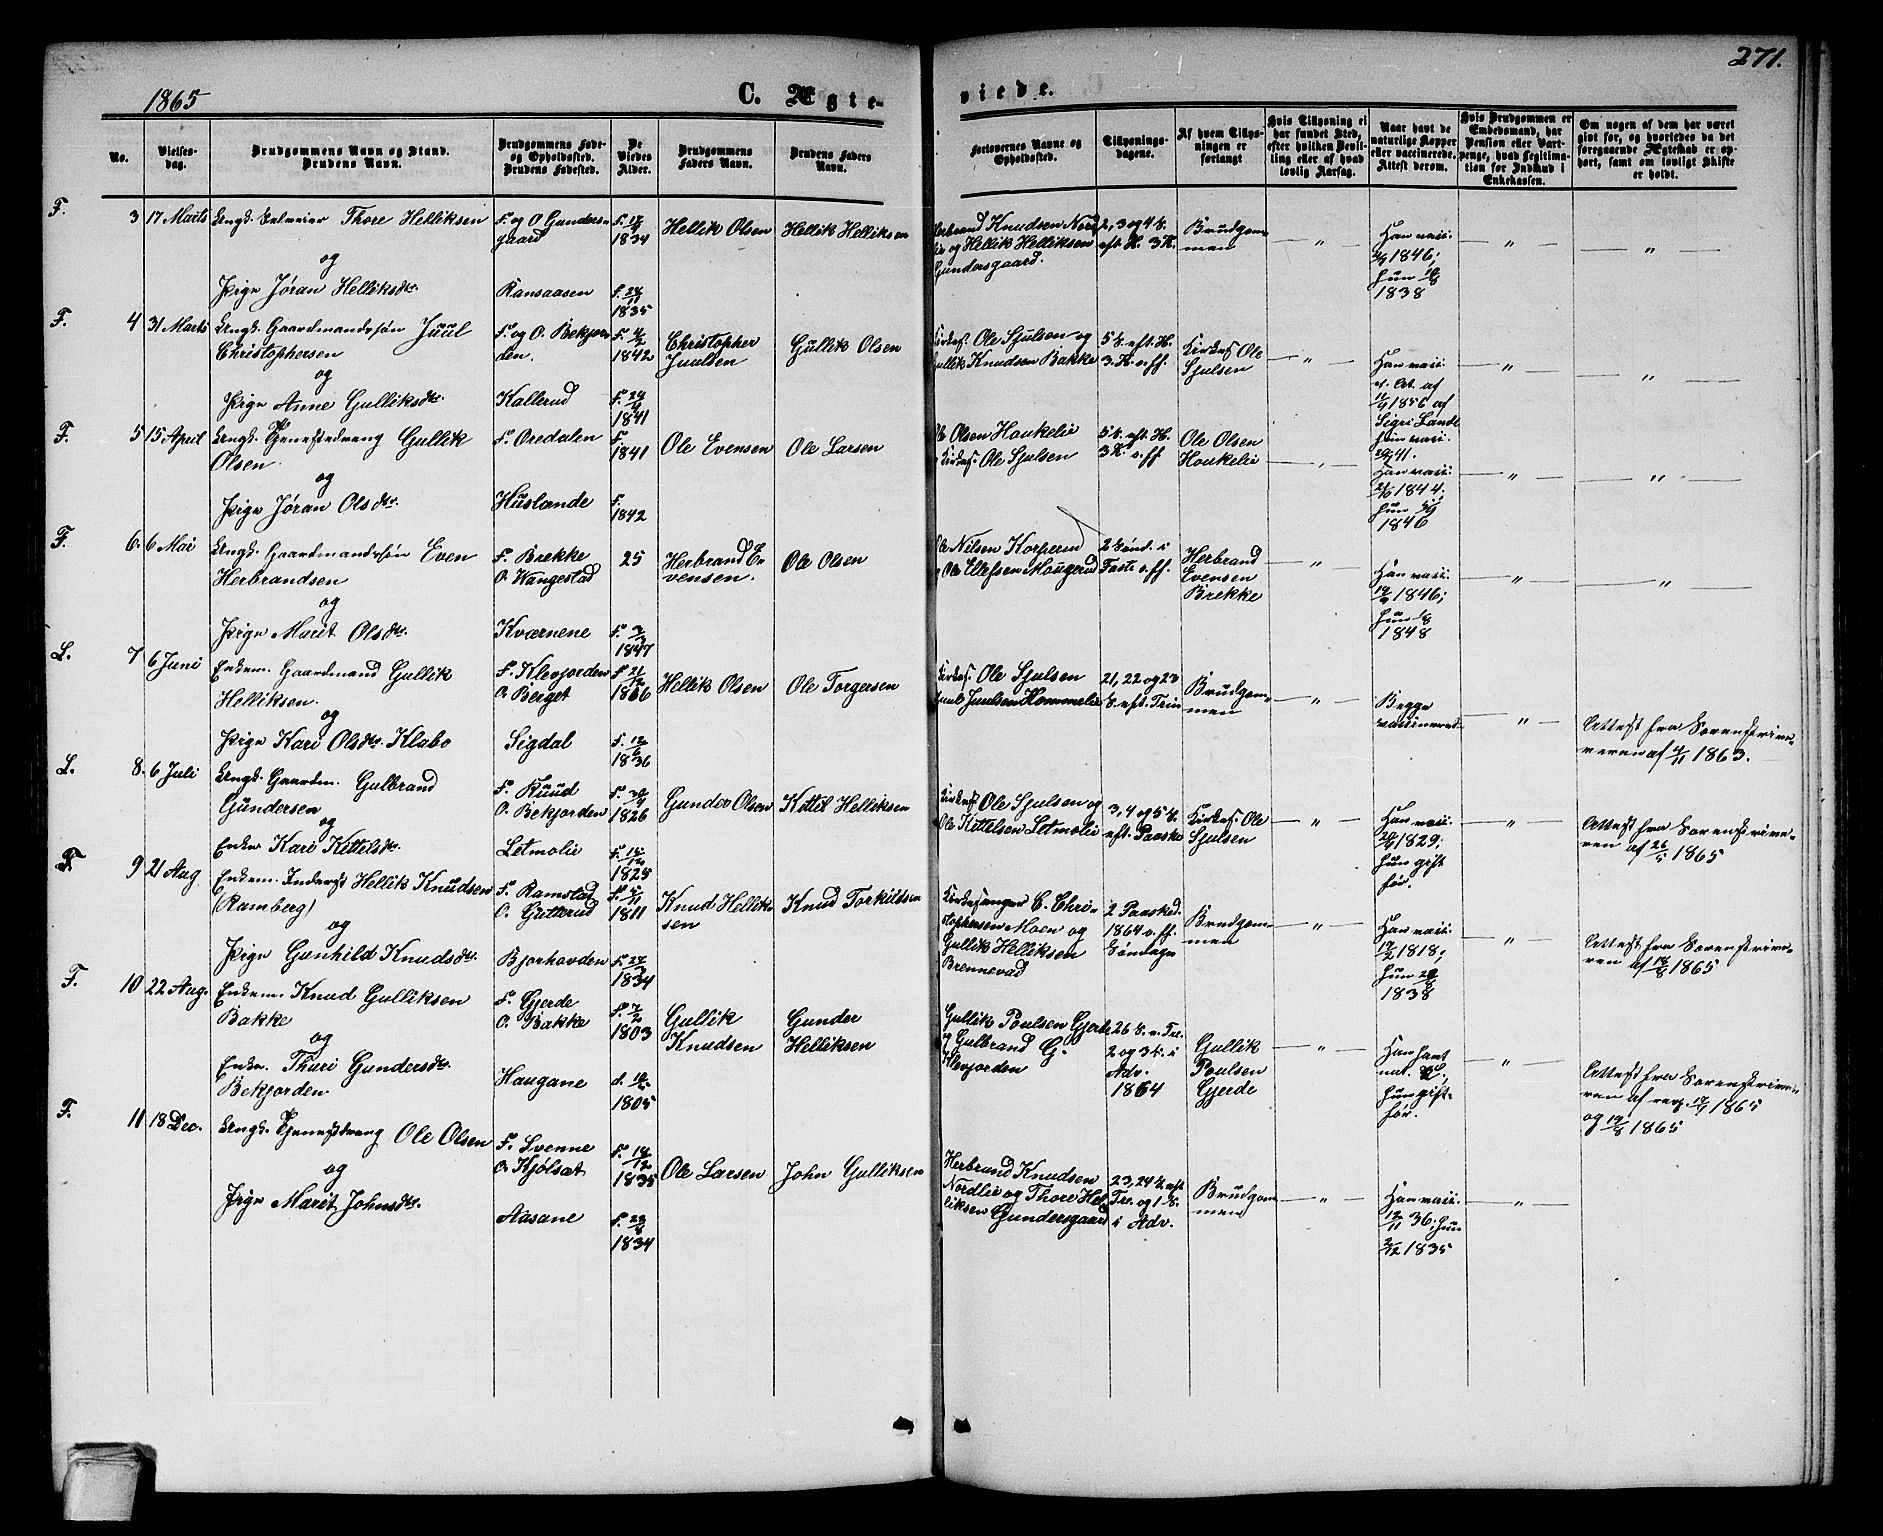 271.
1865
C. Ægte-
viede.
No.
Vielses-
dag.
Brudgommens Navn og Stand.
Brudens Navn.
Brudgommens Føde-
og Opholdssted.
Brudens Fødested.
De
Viedes
Alder.
Brudgommens
Faders Navn.
Brudens Faders
Navn.
Forlovernes Navne og
Opholdssted.
Tillysnings-
dagene.
Af hvem Tillys-
ningen er
forlangt
Hvis Tillysning ei
har fundet Sted,
efter hvilken Bevil-
ling eller af hvad
lovlig Aarsag.
Naar havt de
naturlige Kopper
eller vaccinerede.
Attest derom.
Hvis Brudgommen er
Embedsmand, har
Pension eller Vart-
penge, hvad Legitima-
tion for Indskud i
Enkekassen.
Om nogen af dem har været
givt før, og hvorledes da det
foregaaende Ægteskab er op-
hørt, samt om lovligt Skifte
er holdt.
F. 3 17 Marts Ungk. Selveier Thore Helliksen
og
Pige Jøran Helliksdtr.
F. og O. Gunders-
gaard
Ransaasen
F. 17/4
1834
F. 24/11
1835
Hellik Olsen
Hellik Helliksen
Herbrand Knudsen Nord
lie og Hellik Helliksen
Gundersgaard.
2, 3 og 4 S.
eft. H. 3 K.
Brudgom-
men
Han vacc.
1846;
hun
1838
F. 4 31 Marts Ungk. Gaardmandssøn Juul
Christophersen
og
Pige Anne Gulliksdtr.
F. og O. Bekjor-
den.
Kallerud
F.
1842
F.
1841
Christopher
Juulsen
Gullik Olsen
Kirkes. Ole Sjulsen og
Gullik Knudsen Bakke
5 S. eft. H.
3 K. o. ff.
Kirkes. Ole
Sjulsen
Han vacc.
e. At. af
1856 af
Sigri Lande
hun vacc.
41.
F. 5 15 April Ungk. Tjenestedreng Gullik
Olsen
og
Pige Jøran Olsdtr.
F. Oredalen
Huslænde
F.
1841
F.
1842
Ole Evensen
Ole Larsen
Ole Olsen Houkelie
og Kirkes. Ole Sjulsen
5 S. eft. H.
3 K. o. ff
Ole Olsen
Houkelie
Han vacc.
1844;
hun
1846
F. 6. 6 Mai Ungk. Gaardmandssøn Even
Herbrandsen
og
Pige Marit Olsdtr.
F. Brekke
O. Kangestad
Kværnene
25
F.
1847
Herbrand E-
vensen.
Ole Olsen
Ole Nilsen Korperud
og Ole Ellefsen Mougerud
2 Sønd. i
Faste o. ff.
Herbrand
Evensen
Brekke
Han vacc.
1846;
hun
1848
L. 7 6 Juni Enkem. Gaardmand Gullik
Helliksen.
og
Pige Kari Olsdtr. Klabo
F. Klevjorden
O. Berget
Sigdal
F. 21/12
F. 12/6
1836
Hellik Olsen
Ole Torgersen
Kirkes. Ole Sjulsen
Juul Juulsen Hommelie
21, 22 og 23
S. eft. Trin
Brudgom-
men
Begge
vaccinerede
Attest fra Sorenskrive-
veren af 4/11 1863.
L. 8. 6 Juli Ungk. Gaardm. Gulbrand
Gundersen
og
Enke Kari Kittelsdtr.
F. Ruud
O. Bekjorden
Letmolie
F.
1826
F.
1825
Gunder Olsen
Kittil Helliksen
Kirkes Ole Sjulsen og
Ole Kittelsen Letmolie
3, 4 og 5 S.
eft. Paaske
Kirkes. Ole
Sjulsen
Han vacc.
1829;
hun gift
før.
Attest fra Sorenskrive-
ren af 26/5 1865
F. 9 21 Aug. Enkem. Inderst Hellik Knudsen
(Ramberg)
og
Pige Gunhild Knudsdtr.
F. Ramstad
O. Gutterud
Bjorhovden
F.
1811
F.
1834
Knud Hellik-
sen
Knud Torkildsen
Kirkesanger C. Chri-
stophersen Moen og
Gullik Helliksen
Brennevad
2 Paasked.
1864 o. ff.
Søndage
Brudgom-
men
Han vacc.
1818;
hun
1838
Attest fra Sorenskrive-
ren af 1865
F. 10 22 Aug. Enkem. Knud Gulliksen
Bakke
og
Enke. Thuri Gundersdtr.
Bekjorden
F. Gjerde
O. Bakke
Haugane
F. 7/2
1803
1805
Gullik
Knudsen
Gunder
Helliksen
Gullik Poulsen Gjerde
og Gulbrand G.
Klevjorden
26 S. e. Tre.
2 og 3 S. i
Adv.
1864
Gullik
Poulsen
Gjerde
Han havt
nat.
hun gift
før.
Attest fra Sorenskrive-
ren af resp. 1865
og 1865
F. 11 18 Dec. Ungk. Tjenestdreng Ole Olsen
og
Pige Marit Johnsdtr.
F. Svenne
O. Kjølsæt
Aasane
F. 14/12
1835
F. 23/8
1834
Ole Larsen
John Gulliksen
Herbrand Knudsen
Nordlie og Thore Hel-
liksen Gundersgaard
23, 24 S. eft
Tre. og 1 S.
i Adv.
Brudgom-
men
Han vacc.
12/11 36; hun
2/12 1835